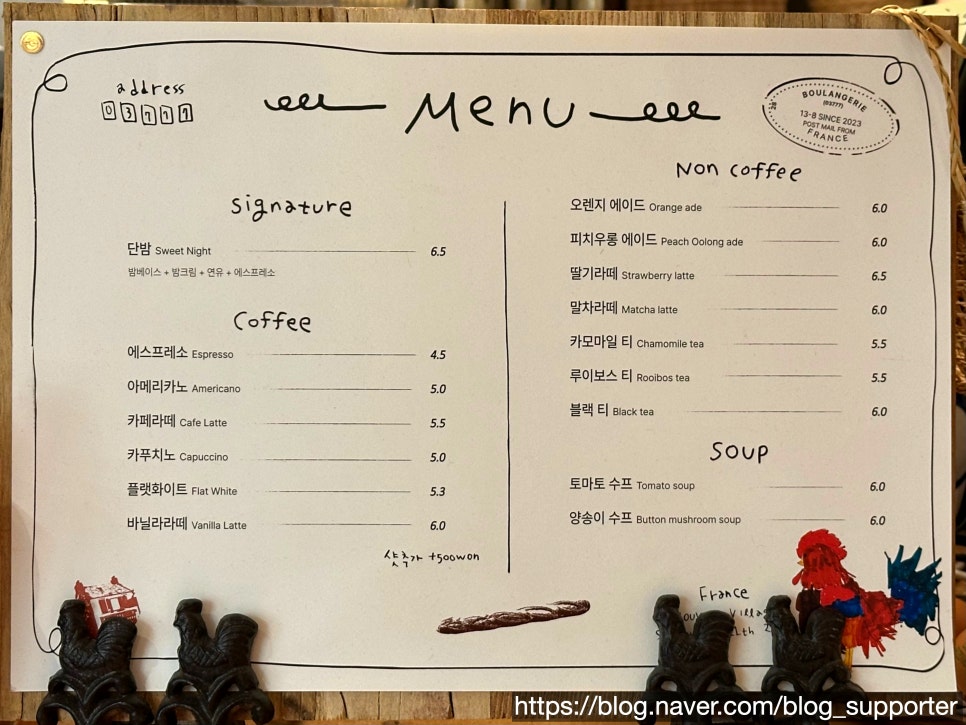 address
03777
Menu
BOULANGERIE
(03777)
28'
13-8 SINCE 2023
POST MAIL FROM
FRANCE
Signature
단밤 Sweet Night 6.5
밤베이스 + 밤크림 + 연유 + 에스프레소
Coffee
에스프레소 Espresso 4.5
아메리카노 Americano 5.0
카페라떼 Cafe Latte 5.5
카푸치노 Capuccino 5.0
플랫화이트 Flat White 5.3
바닐라라떼 Vanilla Latte 6.0
샷추가 +500won
Non coffee
오렌지 에이드 Orange ade 6.0
피치우롱 에이드 Peach Oolong ade 6.0
딸기라떼 Strawberry latte 6.5
말차라떼 Matcha latte 6.0
카모마일 티 Chamomile tea 5.5
루이보스 티 Rooibos tea 5.5
블랙 티 Black tea 6.0
Soup
토마토 수프 Tomato soup 6.0
양송이 수프 Button mushroom soup 6.0
France
https://blog.naver.com/blog_supporter